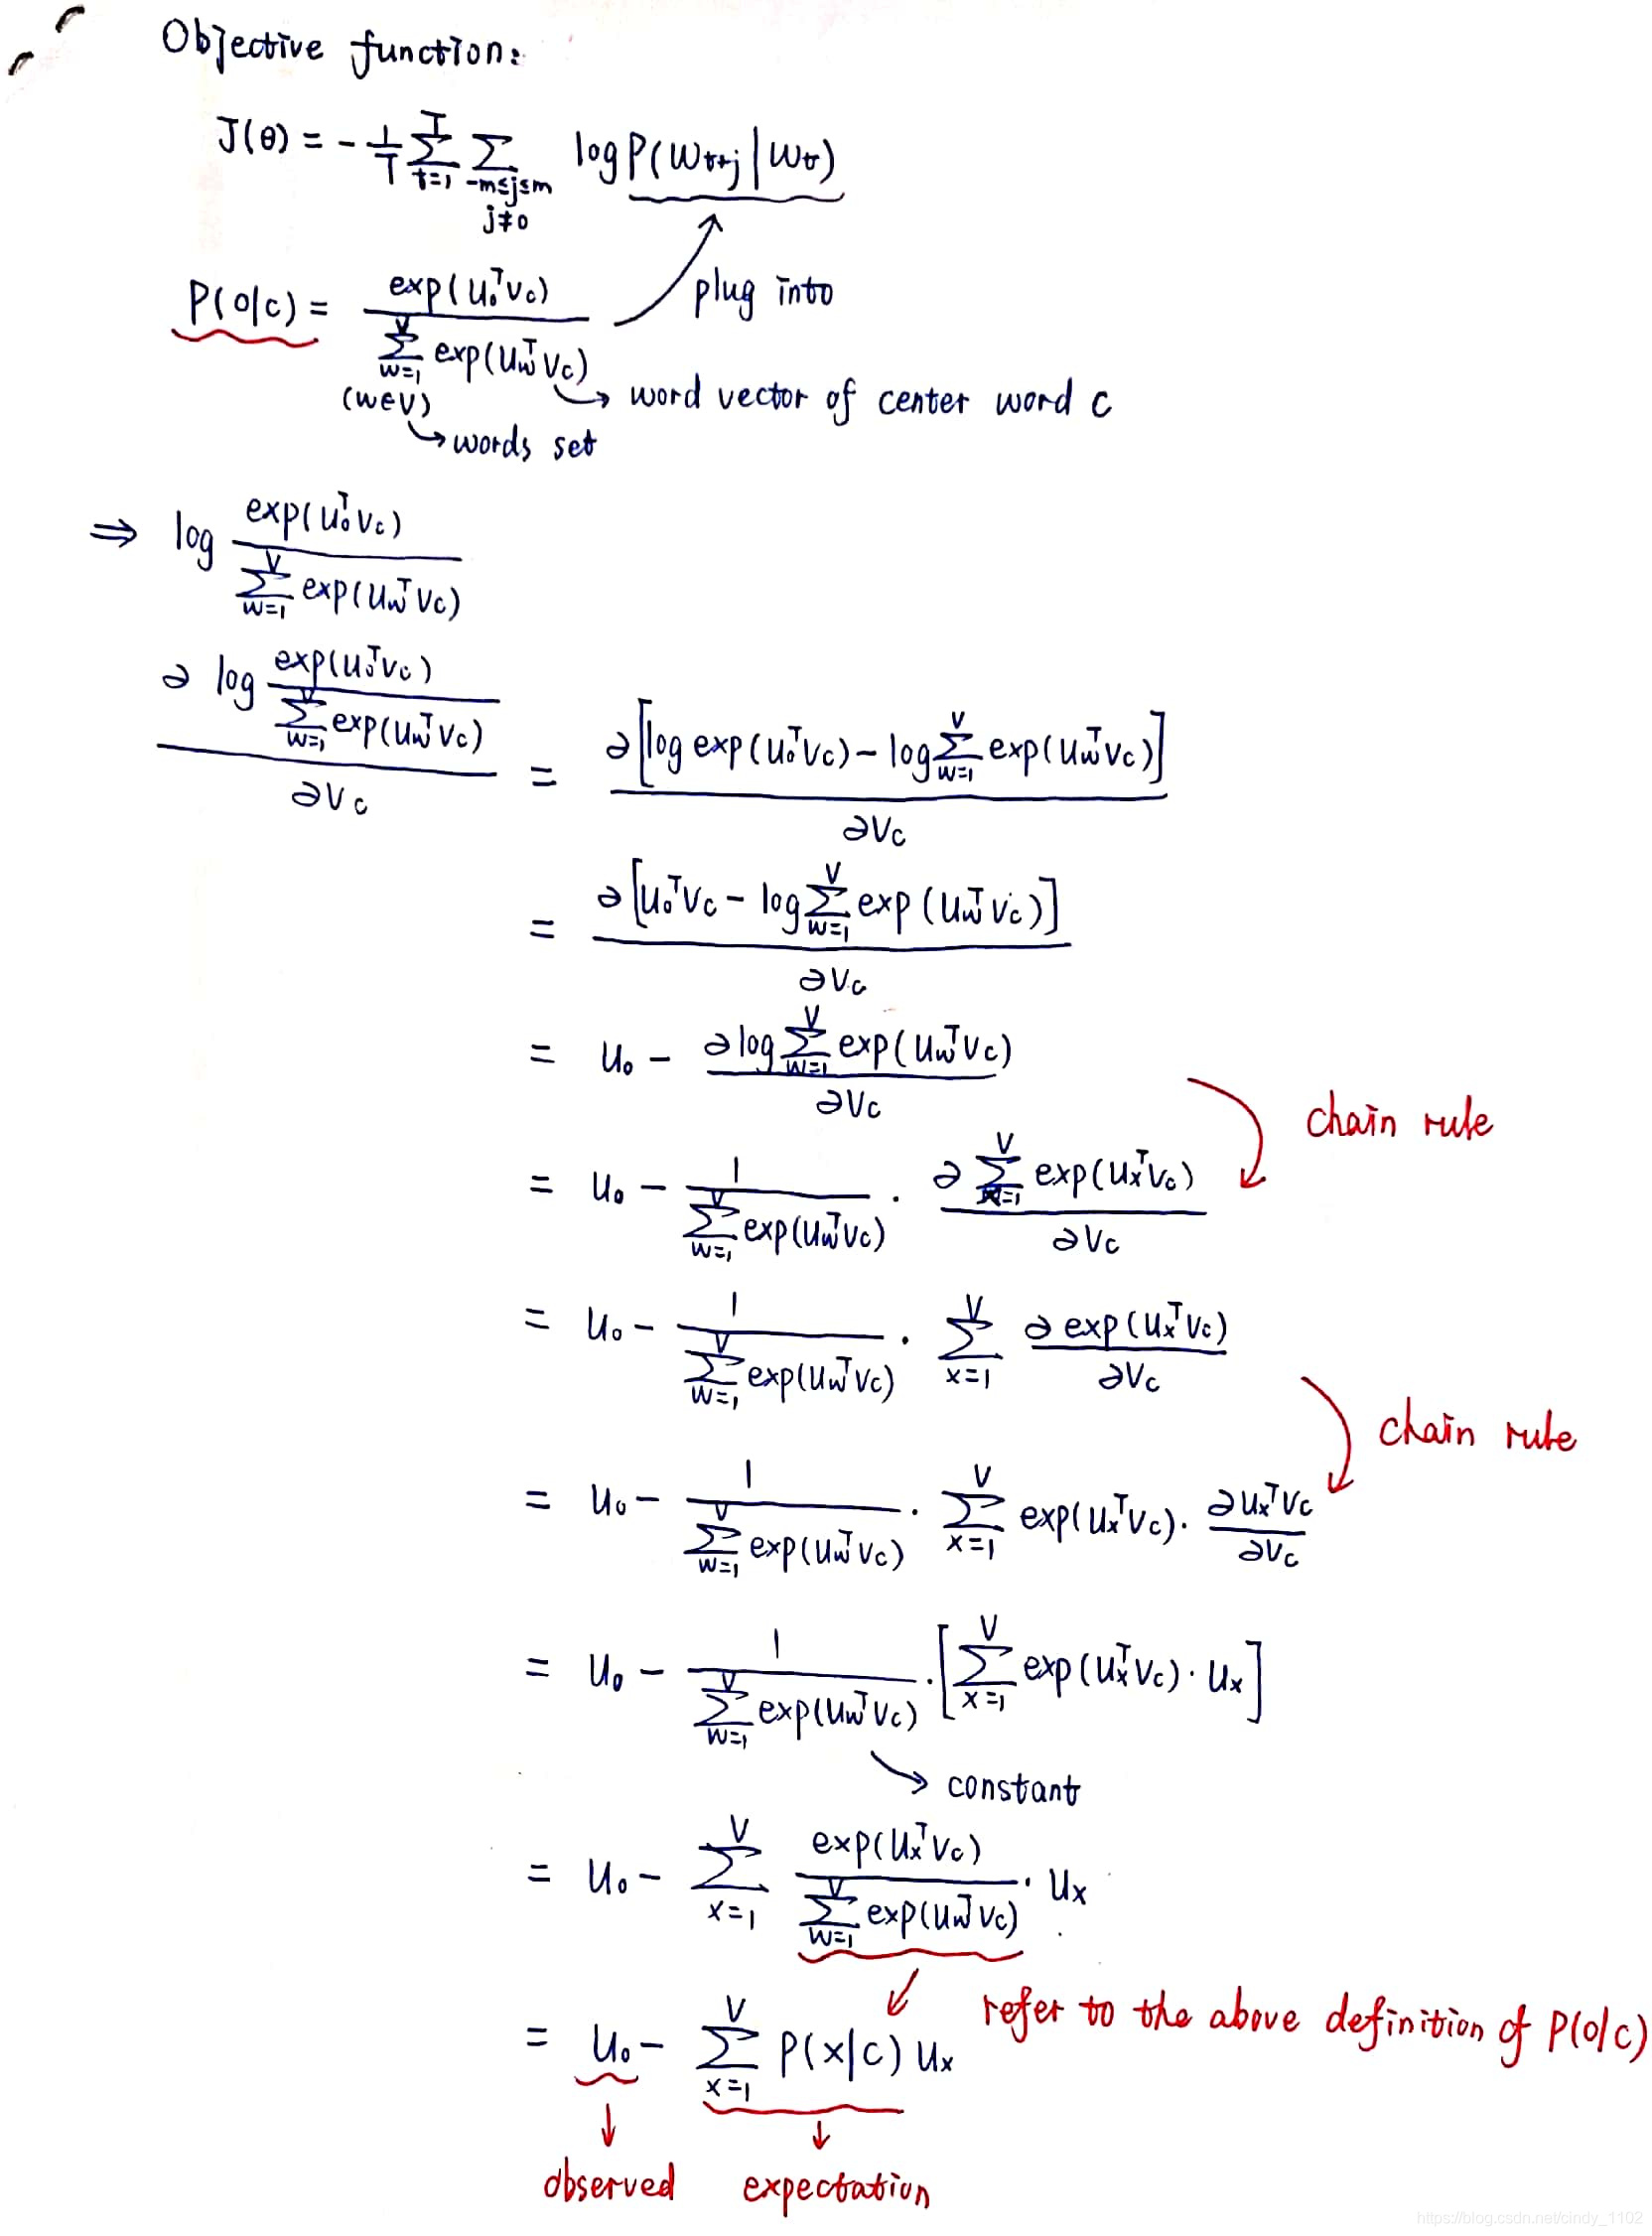 Objective function:
J(θ) = - 1/T ∑_{t=1}^{T} ∑_{-m≤j≤m, j≠0} log P(w_{t+j} | w_t)
plug into
P(o|c) = exp(u_o^T v_c) / ∑_{w=1}^{V} exp(u_w^T v_c)
(w∈V) → word vector of center word c
→ words set
⇒ log exp(u_o^T v_c) / ∑_{w=1}^{V} exp(u_w^T v_c)
∂ log [exp(u_o^T v_c) / ∑_{w=1}^{V} exp(u_w^T v_c)] / ∂v_c = ∂[log exp(u_o^T v_c) - log ∑_{w=1}^{V} exp(u_w^T v_c)] / ∂v_c
= ∂[u_o^T v_c - log ∑_{w=1}^{V} exp(u_w^T v_c)] / ∂v_c
= u_o - ∂ log ∑_{w=1}^{V} exp(u_w^T v_c) / ∂v_c
chain rule
= u_o - 1 / ∑_{w=1}^{V} exp(u_w^T v_c) · ∂ ∑_{x=1}^{V} exp(u_x^T v_c) / ∂v_c
= u_o - 1 / ∑_{w=1}^{V} exp(u_w^T v_c) · ∑_{x=1}^{V} ∂ exp(u_x^T v_c) / ∂v_c
chain rule
= u_o - 1 / ∑_{w=1}^{V} exp(u_w^T v_c) · ∑_{x=1}^{V} exp(u_x^T v_c) · ∂ u_x^T v_c / ∂v_c
= u_o - 1 / ∑_{w=1}^{V} exp(u_w^T v_c) · [∑_{x=1}^{V} exp(u_x^T v_c) · u_x]
→ constant
= u_o - ∑_{x=1}^{V} exp(u_x^T v_c) / ∑_{w=1}^{V} exp(u_w^T v_c) · u_x
refer to the above definition of P(o|c)
= u_o - ∑_{x=1}^{V} P(x|c) u_x
observed expectation
https://blog.csdn.net/cindy_1102